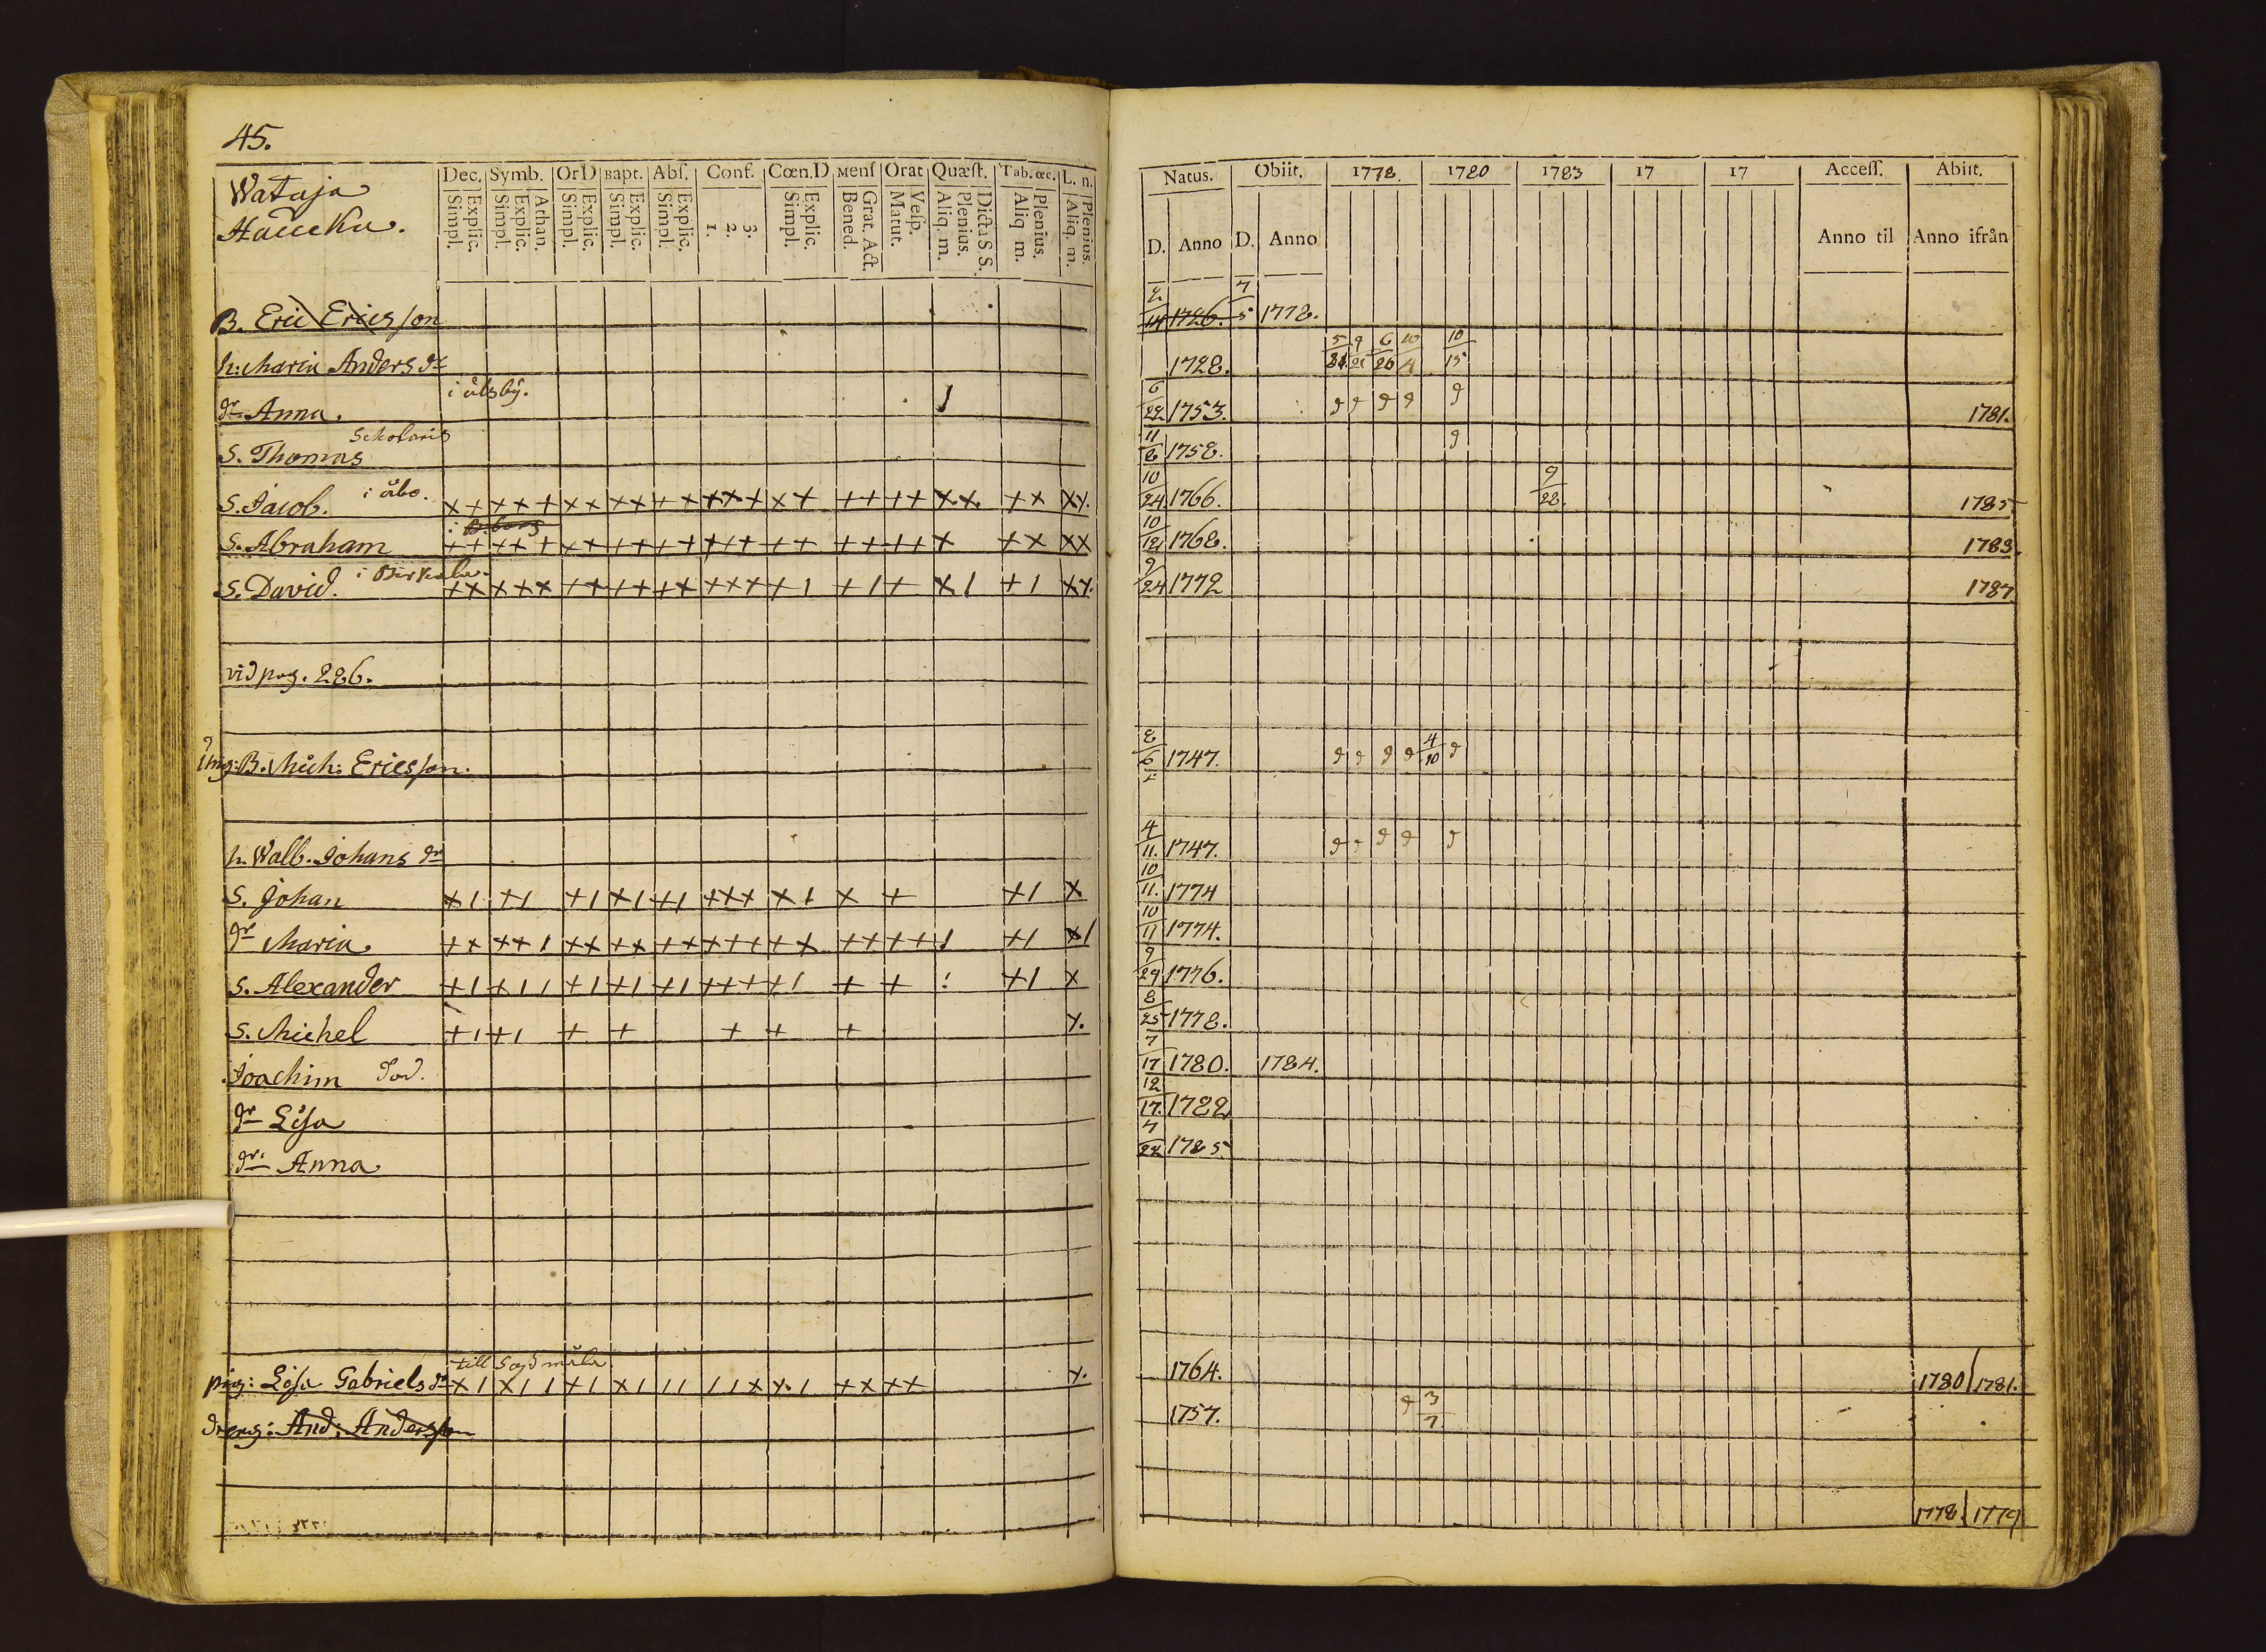 45.
Wataja
Haucku.
Dec. Symb. Or D Bapt. Abſ. Conf. Cœn. D Menſ Orat Quæſt. Tab. œc. L. n.
Simpl. Explic. Simpl. Explic. Athan. Simpl. Explic. Simpl. Explic. Simpl. Explic. 1. 2. 3. Simpl. Explic. Bened. Grat. Act. Matut. Veſp. Aliq. m. Plenius. Dicta S. S. Aliq m. Plenius. Aliq. m. Plenius.
B. Eric Ericsson
h: Maria Anders dr
dr Anna. i ålsby.
S. Thomas Scholaris
S. Jacob. i åbo. + + + + + + + + + + + + + + x + + + + + x x. + x x x.
S. Abraham i + + + + + + + + + + + + + + + + + + + + + x + x x x
S. David. i Birkala. + x x x x + + + + + x + x x + 1 + 1 + x 1 + 1 x x.
vid pag. 226.
B. Mich: Ericsson.
h. Walb. Johans dr
S. Johan x 1 + 1 + 1 x 1 + 1 + x x x 1 x + + 1 x
dr Maria + x x + 1 x x + x + x x + + + x + + + + 1 + 1 x 1
S. Alexander + 1 + 1 1 + 1 + 1 + 1 + + + + 1 + + ! + 1 x
S. Michel + 1 + 1 + + + + + x.
Joachim död.
dr Lisa
dr Anna
pig: Lisa Gabriels dr till x 1 x 1 1 + 1 x 1 1 1 1 1 x x. 1 + x x x x.
dreng: And: Andersson
Natus. Obiit. 1778. 1780 1783 17 17 Acceſſ. Abiit.
D. Anno D. Anno Anno til Anno ifrån
2/14 1726. 7/5 1778.
1728. 5/31 9/21 6/20 10/4 10/15
6/22 1753. d d d d d 1781.
11/6 1758. d
10/24 1766. 9/28. 1785
10/12 1768. 1783.
9/24 1772 1787
8/6 1747. d d d d 4/10 d
4/11. 1747. d d d d d
10/11. 1774
10/11 1774.
9/29 1776.
8/25 1778.
7/17 1780. 1784.
12/17. 1782
7/22 1785
1764. 1780/1781.
1757. d 3/7
1778./1779